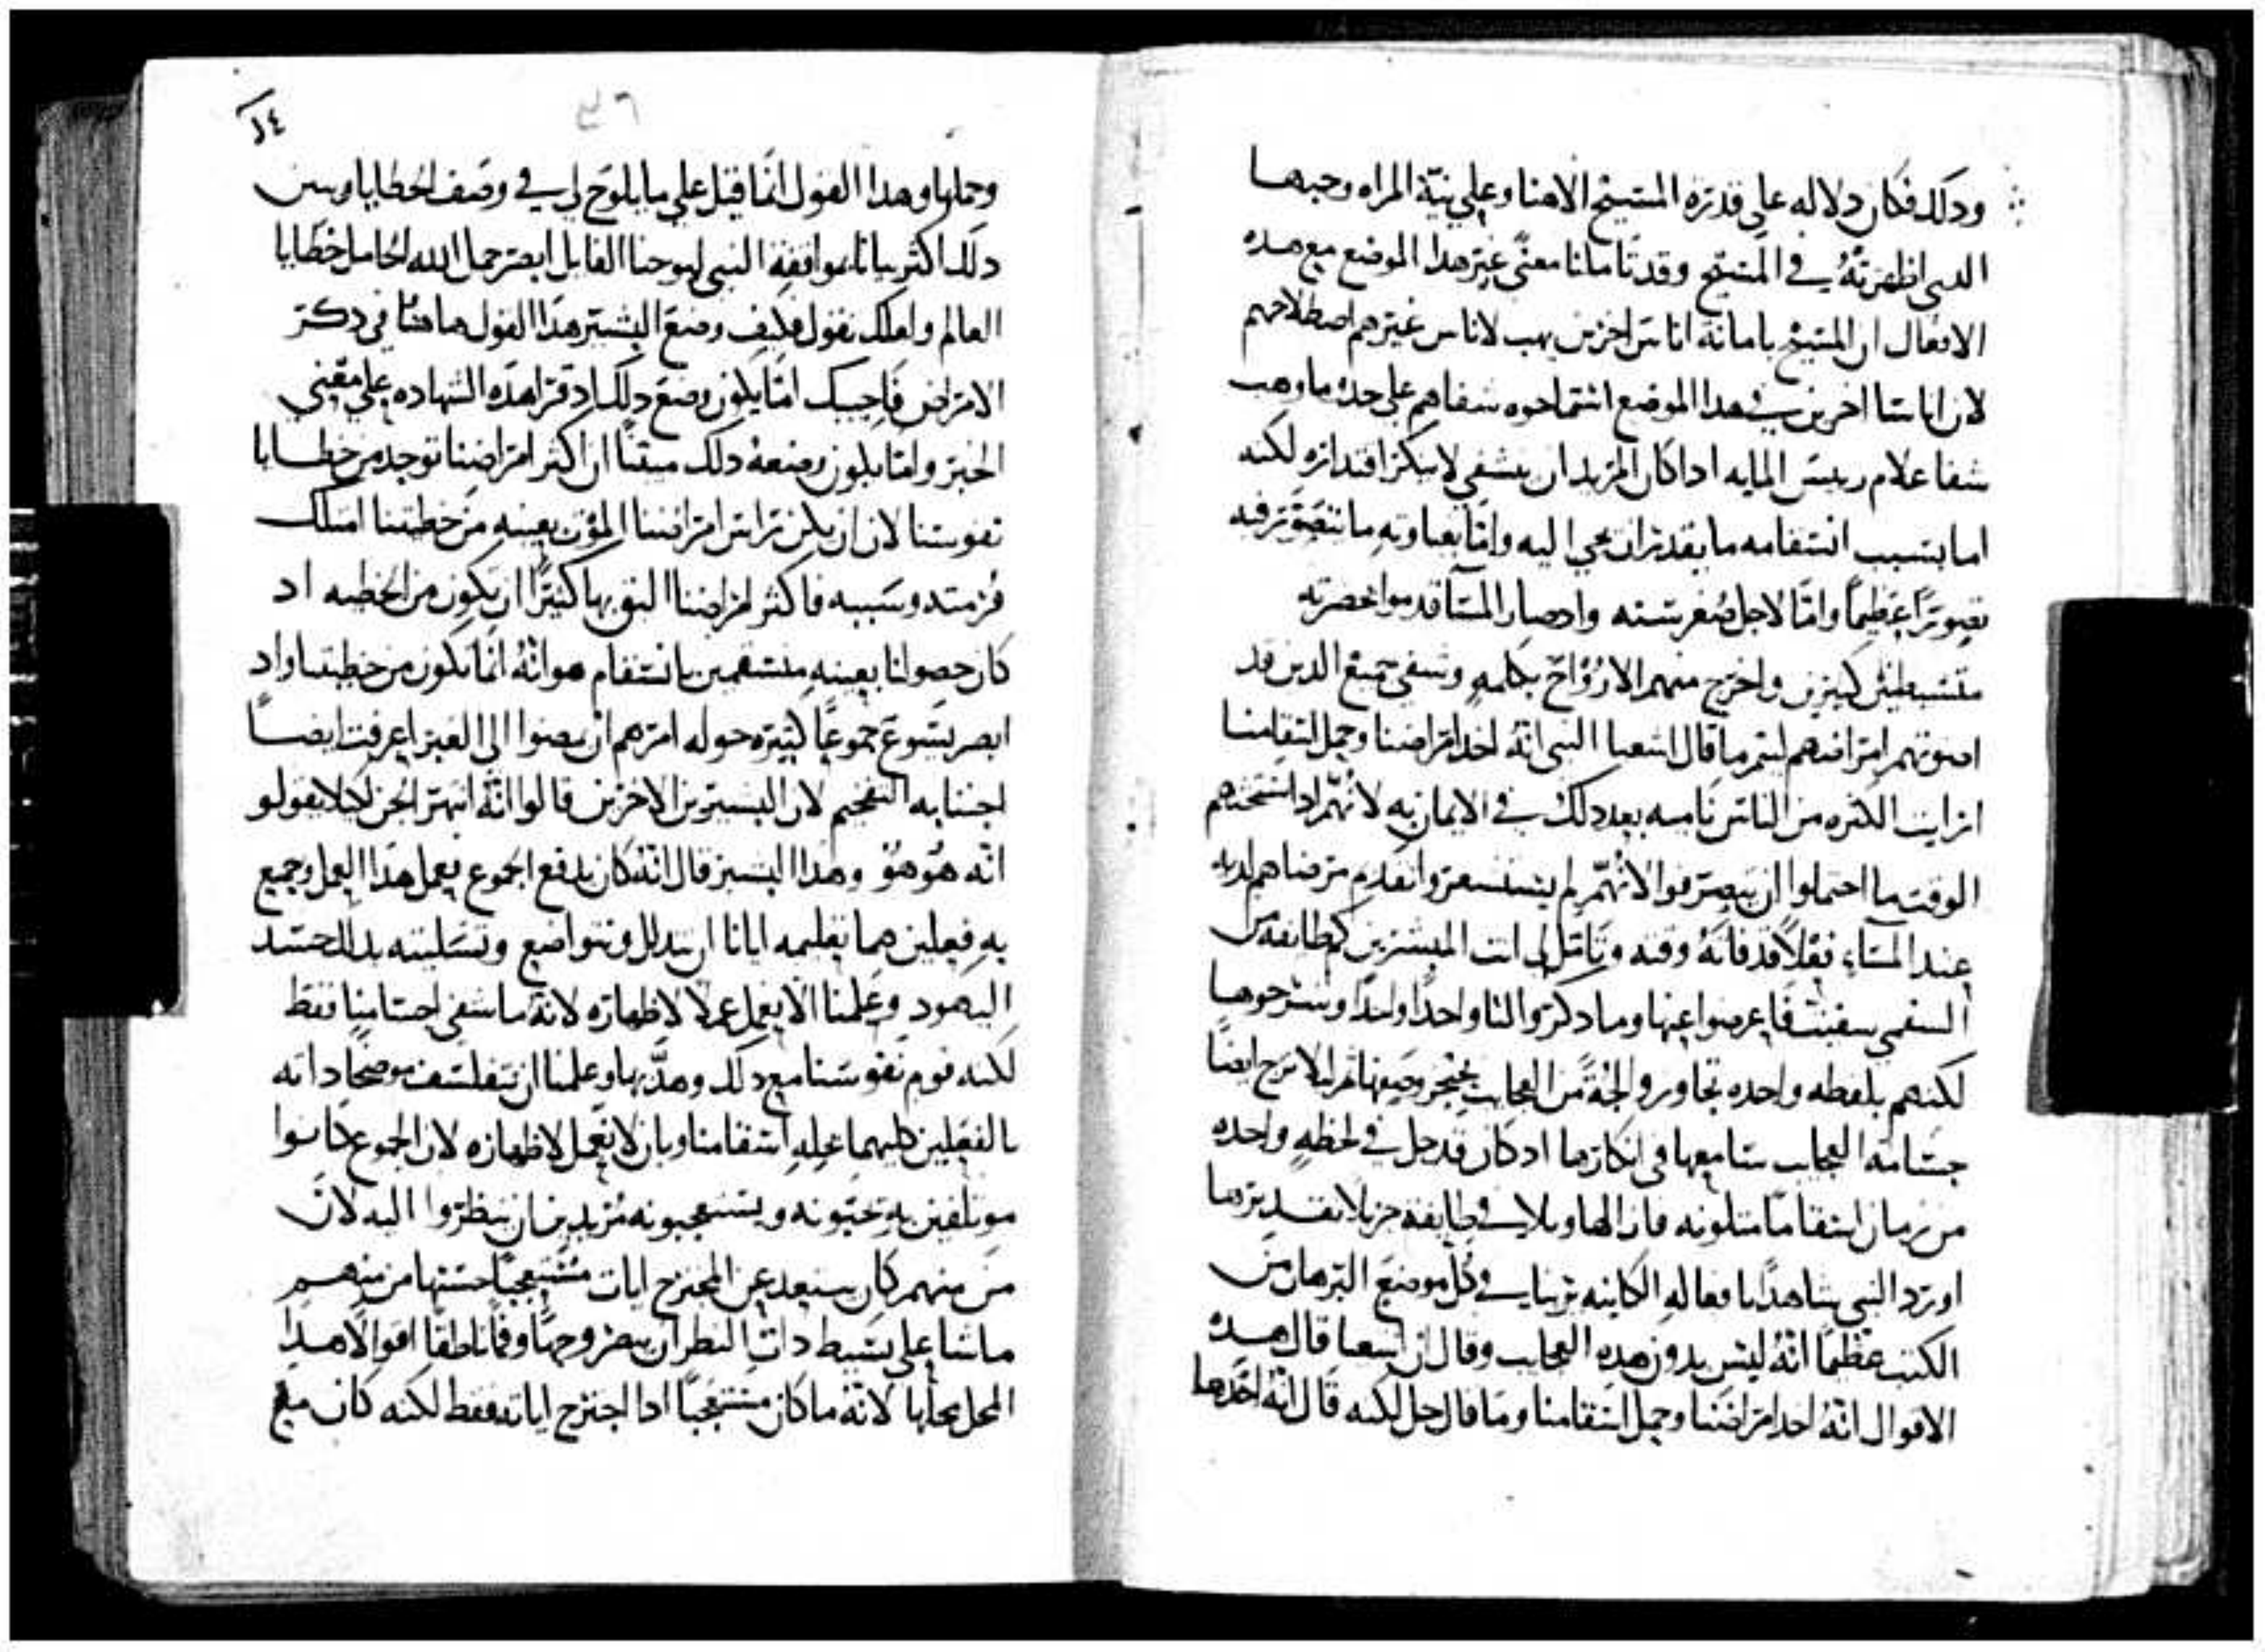 ودلك فكان دلاله على قدرة المسيح الاهنا وعلي نية المراه وحبها
الدي اظهرته في المسيح وقد تاملنا معنى غير هدا الموضع مع هده
الافعال ان المسيح بامانة اناس اخرين يهب لاناس غيرهم اصطلاحهم
لان اناسا اخرين في هدا الموضع استماحوه شفاهم على حدو ما وهب
شفا غلام رييس المايه ادا كان المريد ان يشفي لا ينكر اقتداره لكنه
اما بسبب استقامه ما يقدر ان يجي اليه واما بغباوته ما يتصور فيه
تصورا عظيما واما لاجل صغر سنه وادصار المسا قدموا حضرته
متشيطنين كثيرين واخرج منهم الارواح بكلمه وشفي جميع الدين قد
امراضهم ليتم ما قال اشعيا النبي انه اخد امراضنا وحمل اسقامنا
ارايت الكثره من الناس ناميه بعد دلك في الايمان به لانهم اد استحتهم
الوقت ما احتملوا ان ينصرفوا لانهم لم يستشعروا تقديم مرضاهم لديه
عند المسآء فعلا قد فاته وقته وتامل لي انت المبشرين كم طايفه من
السقمي سقيت فاعرضوا عنها وما دكروا لنا واحدا واحدا وشرحوها
لكنهم بلفظه واحده تجاوروا لجة من العجايب يعجز وصفها ثم ليلا ايضا
جسامة العجايب سامعها في انكارها اد كان قد حل في لحظه واحده
من زمان اسقاما متلونه فان الهاويلا في طايفه جزيلا تقديرها
اورد النبي شاهدا بافعاله الكاينه يرينا في كل موضع البرهان من
الكتب عظيما انه ليس بدون هده العجايب وقال ان اشعيا قال هده
الاقوال انه اخد امراضنا وحمل اسقامنا وما قال حل لكنه قال انه اخدها
٤٦
وحملها وهدا القول انما قيل علي ما يلوح لي في وصف الخطايا وبين
دلك اكثر بيانا بموافقة النبي ليوحنا القايل ابصر حمل الله الحامل خطايا
العالم ولعلك تقول فكيف وضع البشير هدا القول هاهنا في دكر
الامراض فاجيبك اما يكون وضع دلك اد قرا هده الشهاده علي معني
الخبر واما يكون وضعه دلك مبينا ان اكثر امراضنا توجد من خطايا
نفوسنا لان ان يكن راس امراضنا الموت بعينه من خطيتنا امتلك
قرمته وسببه فاكثر امراضنا اليق بها كثيرا ان يكون من الخطيه اد
كان حصولنا بعينه منسقمين باسقام هو انه انما تكون من خطيتنا واد
ابصر يسوع جموعا كثيره حوله امرهم ان يمضوا الي العبر اعرفت ايضا
اجتنابه التفخيم لان البشيرين الاخرين قالوا انه انتهر الجن لكيلا يقولو
انه هو هو وهدا البشير قال انه كان يدفع الجموع بعمل هدا العمل وجميع
به فعلين هما تعليمه ايانا ان نتدلل ونتواضع وتسليته بدلك حسد
اليهود وعلمنا الا نعمل عملا لاظهاره لانه ما شفي اجسامنا فقط
لكنه قوم نفوسنا مع دلك وهدبها وعلمنا ان نتفلسف موضحا داته
بالفعلين كليهما عليه اسقامنا وبان لا يعمل لاظهاره لان الجموع كانوا
موتلفين به يحبونه ويستعجبونه مريدين ان ينظروا اليه لان
من منهم كان يبتعد عن المجترح ايات مستعجبا حسنها من منهم
ما شا علي بسيط دات النظر ان يبصر وجها وفما ناطقا اقوالا هدا
المحل محلها لانه ما كان مستعجبا ادا اجترح اياته فقط لكنه كان مع